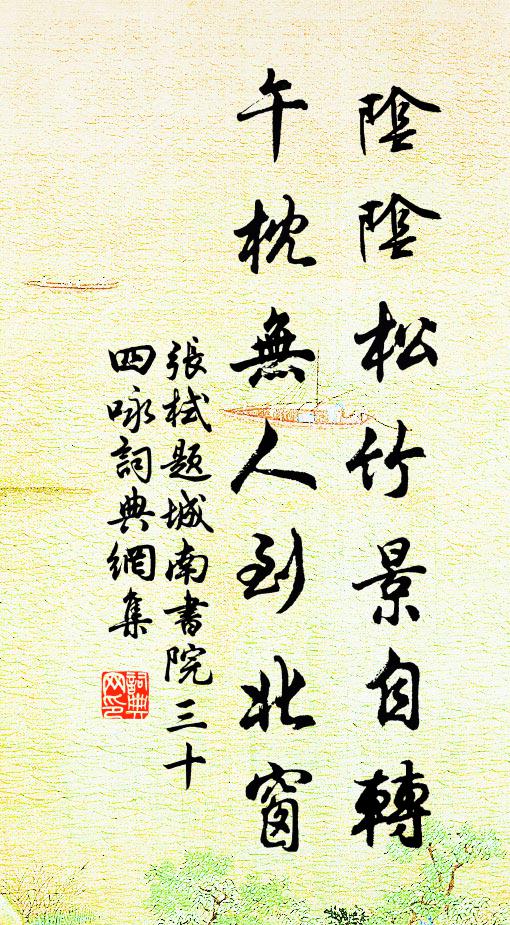 陰陰松竹景自轉
午枕無人到北窗
張栻題城南書院三十
四咏詞典網集
詞典网印